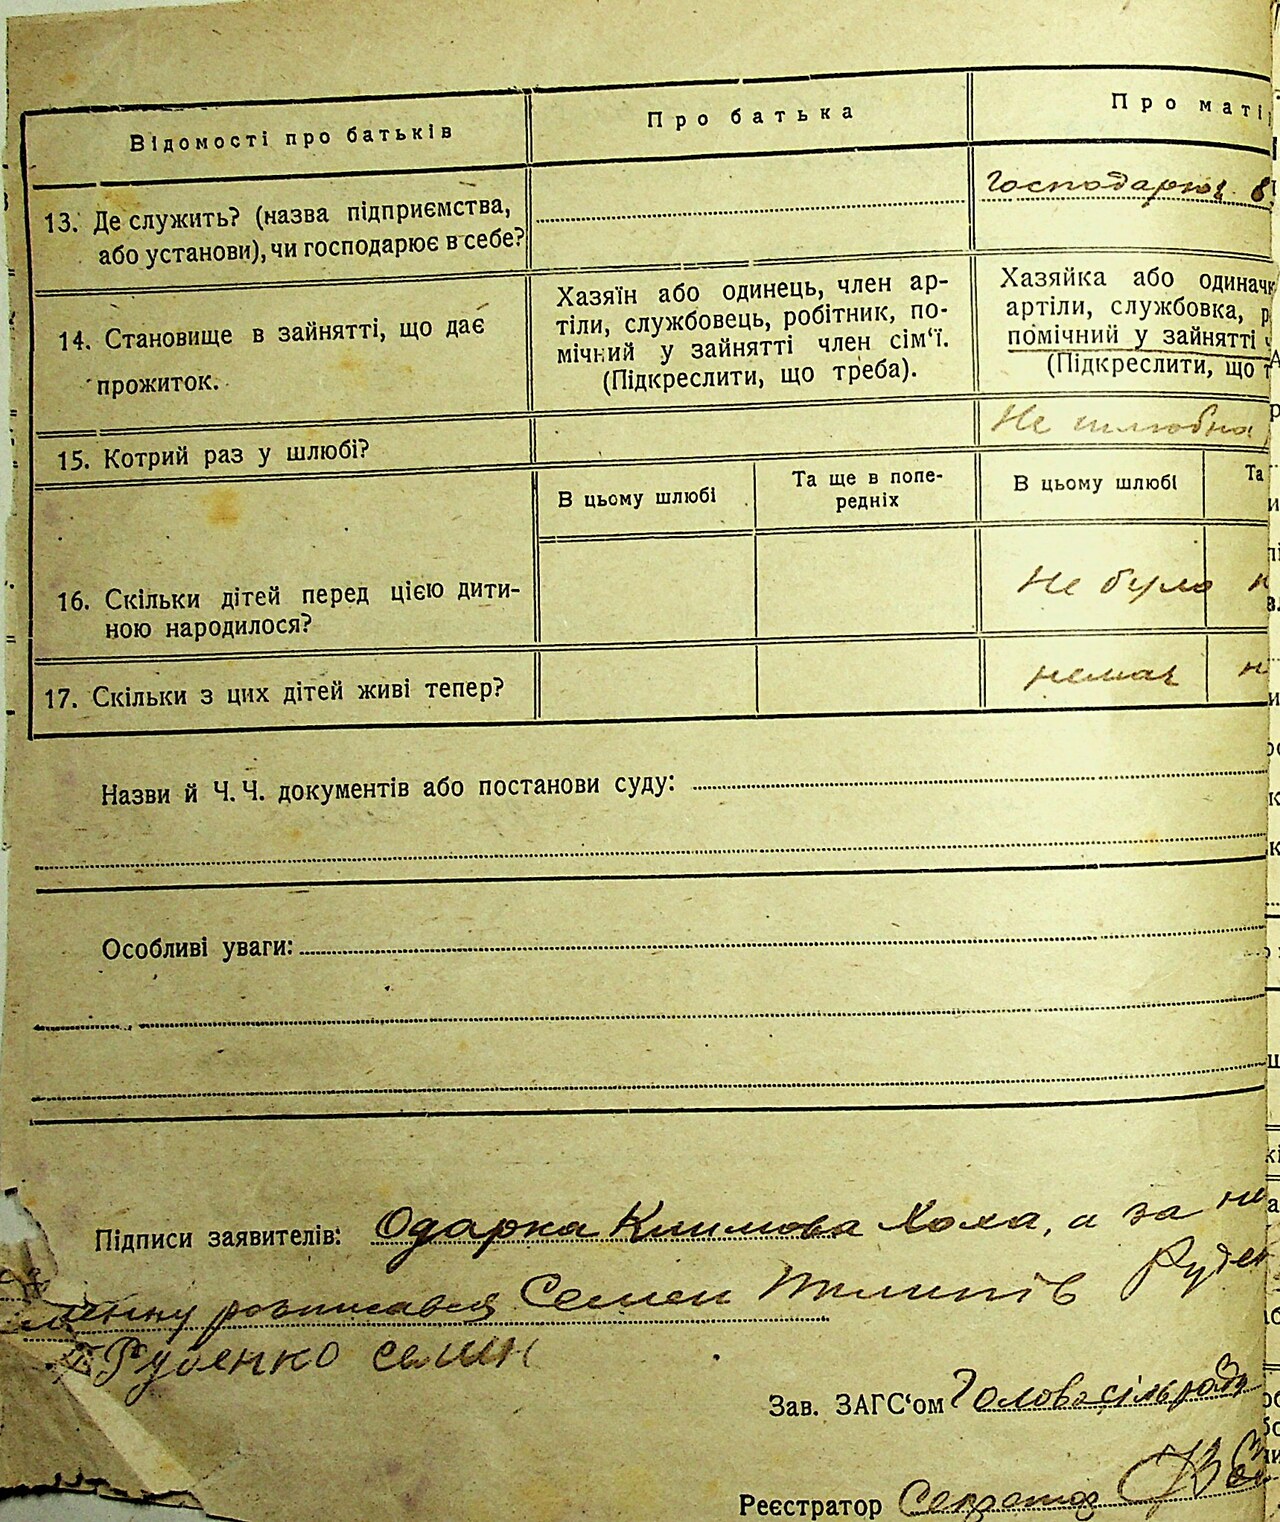 Відомості про батьків
Про батька
Про маті
13. Де служить? (назва підприємства,
або установи), чи господарює в себе?
господарює в
14. Становище в зайнятті, що дає
прожиток.
Хазяїн або одинець, член ар-
тіли, службовець, робітник, по-
мічний у зайнятті член сім‘ї.
(Підкреслити, що треба).
Хазяйка або одиначк
артіли, службовка, р
помічний у зайнятті ч
(Підкреслити, що т
15. Котрий раз у шлюбі?
Не шлюбна
В цьому шлюбі
Та ще в попе-
редніх
В цьому шлюбі
Та
16. Скільки дітей перед цією дити-
ною народилося?
Не було н
17. Скільки з цих дітей живі тепер?
немає н
Назви й Ч. Ч. документів або постанови суду:
Особливі уваги:
Підписи заявителів: Одарка Климова Хола, а за не
розписався Семен Пилипів Руден
Руденко семен
Зав. ЗАГС‘ом Голова сільради
Реєстратор Секретар